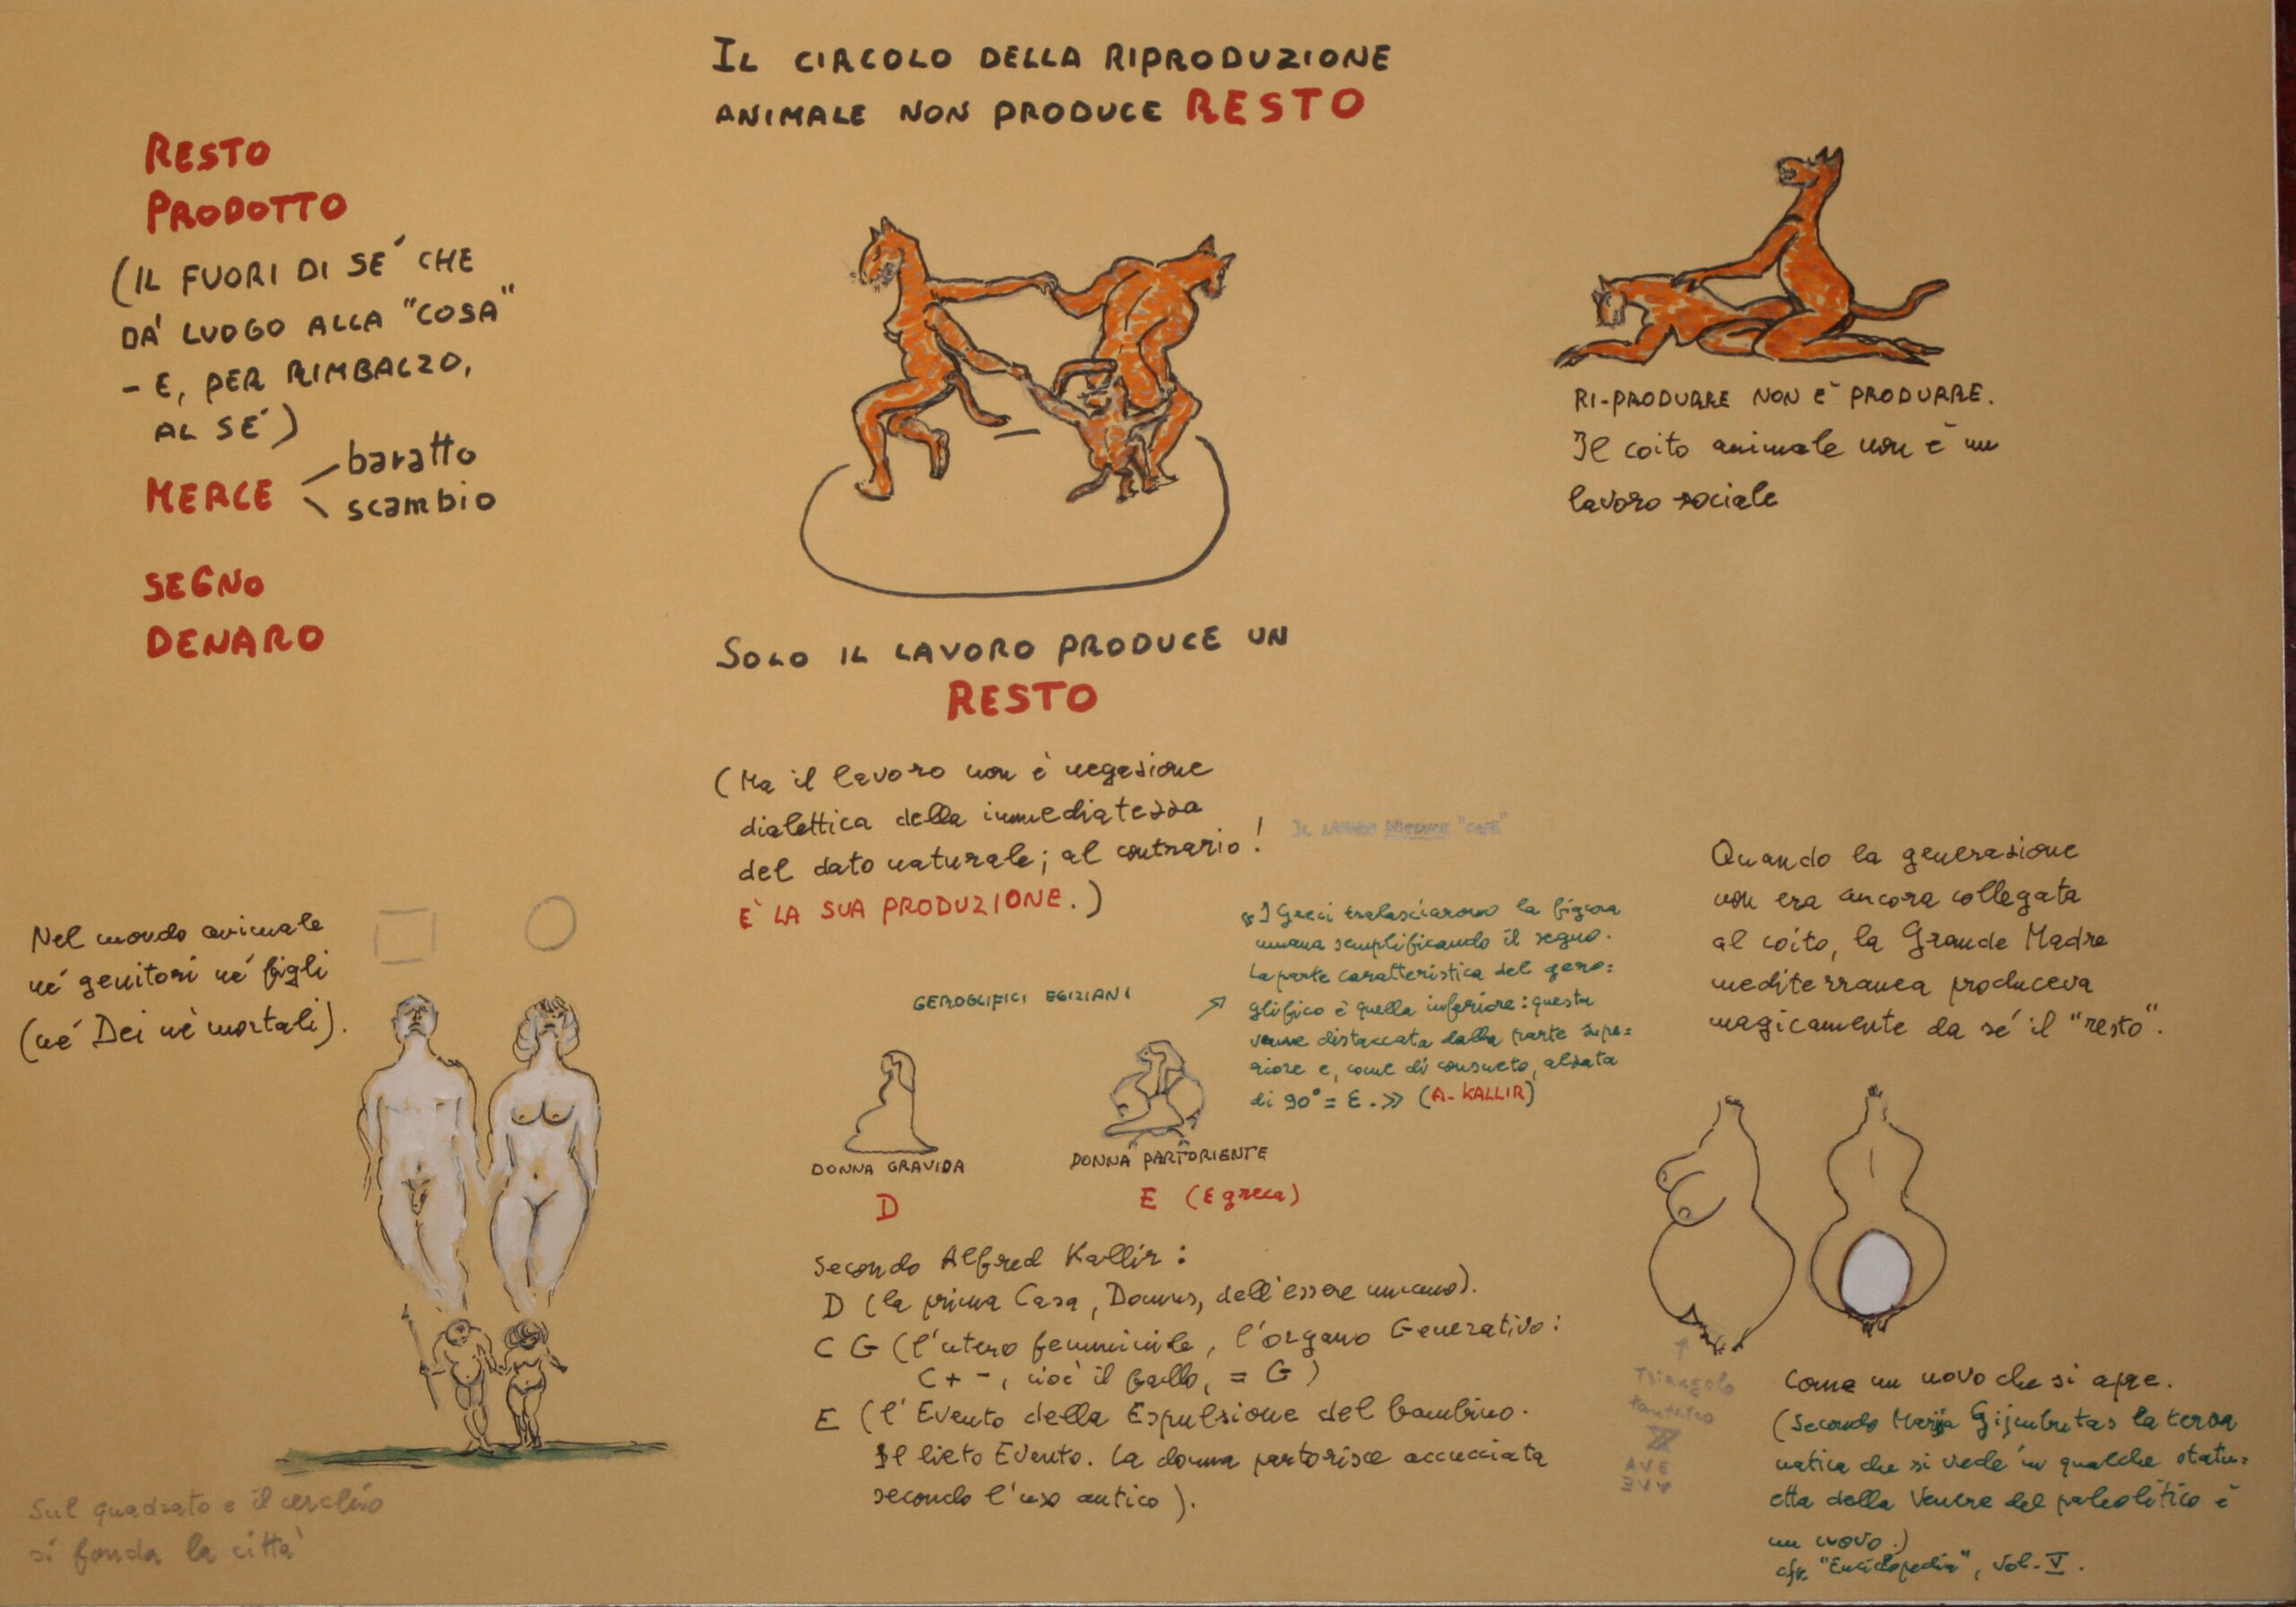 IL CIRCOLO DELLA RIPRODUZIONE
ANIMALE NON PRODUCE RESTO
RESTO
PRODOTTO
(IL FUORI DI SE´ CHE
DA' LUOGO ALLA "COSA"
- E, PER RIMBALZO,
AL SE´)
MERCE
baratto
scambio
SEGNO
DENARO
RI-PRODURRE NON E` PRODURRE.
Il coito animale non è un
lavoro sociale
SOLO IL LAVORO PRODUCE UN
RESTO
(Ma il lavoro non è negazione
dialettica della immediatezza
del dato naturale; al contrario!
E` LA SUA PRODUZIONE.)
IL LAVORO PRODUCE "COSE"
Nel mondo animale
né genitori né figli
(né Dei né mortali).
Sul quadrato e il cerchio
si fonda la città
GEROGLIFICI EGIZIANI
DONNA GRAVIDA
D
DONNA PARTORIENTE
E (E greca)
« I Greci tralasciarono la figura
umana semplificando il segno.
La parte caratteristica del gero=
glifico è quella inferiore: questa
venne distaccata dalla parte supe=
riore e, come di consueto, alzata
di 90° = E. » (A. KALLIR)
Secondo Alfred Kallir:
D (la prima Casa, Domus, dell'essere umano).
C G (l'utero femminile, l'organo Generativo:
C + -, cioè il fallo, = G)
E (l'Evento della Espulsione del bambino.
Il lieto Evento. La donna partorisce accucciata
secondo l'uso antico).
Quando la generazione
non era ancora collegata
al coito, la Grande Madre
mediterranea produceva
magicamente da sé il "resto".
Triangolo
tantrico
AVE
AVE
Come un uovo che si apre.
(Secondo Marija Gijmbutas la terza
natica che si vede in qualche statu=
etta della Venere del paleolitico è
un uovo.)
cfr. "Enciclopedia", Vol. V.